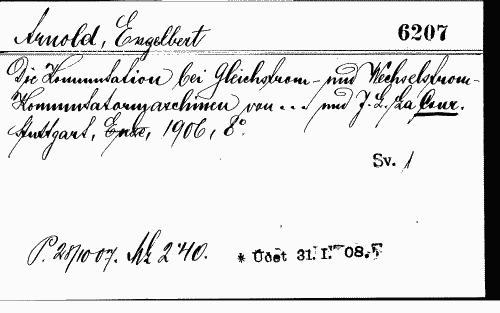 Arnold, Engelbert 6207
Die Kommutation bei Gleichstrom- und Wechselstrom-
Kommutatormaschinen von ... und J. L. La Cour.
Stuttgart, Enke, 1906, 8°.
Sv. 1
P. 28/10 07. Mk 2'40. * Účet 31. I. 08.